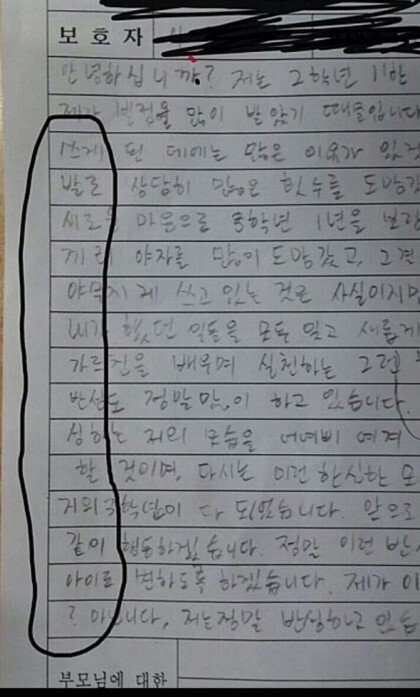 보호자
안녕하십니까? 저는 2학년 11반
제가 벌점을 많이 받았기 때문입니다
쓰게 된 데에는 많은 이유가 있겠
발로 상당히 많은 횟수를 도망갔
새로운 마음으로 3학년 1년을 보람
끼리 야자를 많이 도망갔고, 그건
야무지게 쓰고 있는 것은 사실이지만
내가 했던 일들을 모두 잊고 새롭게
가르친을 배우며 실천하는 그런
반성도 정말 많이 하고 있습니다
성하는 저의 모습을 어여삐 여겨
할 것이며, 다시는 이런 한심한 모
거의 3학년이 다 되었습니다. 앞으로
같이 행동하겠습니다. 정말 이런 반
아이로 변하도록 하겠습니다. 제가 이
? 아닙니다, 저는 정말 반성하고 있습
부모님에 대한